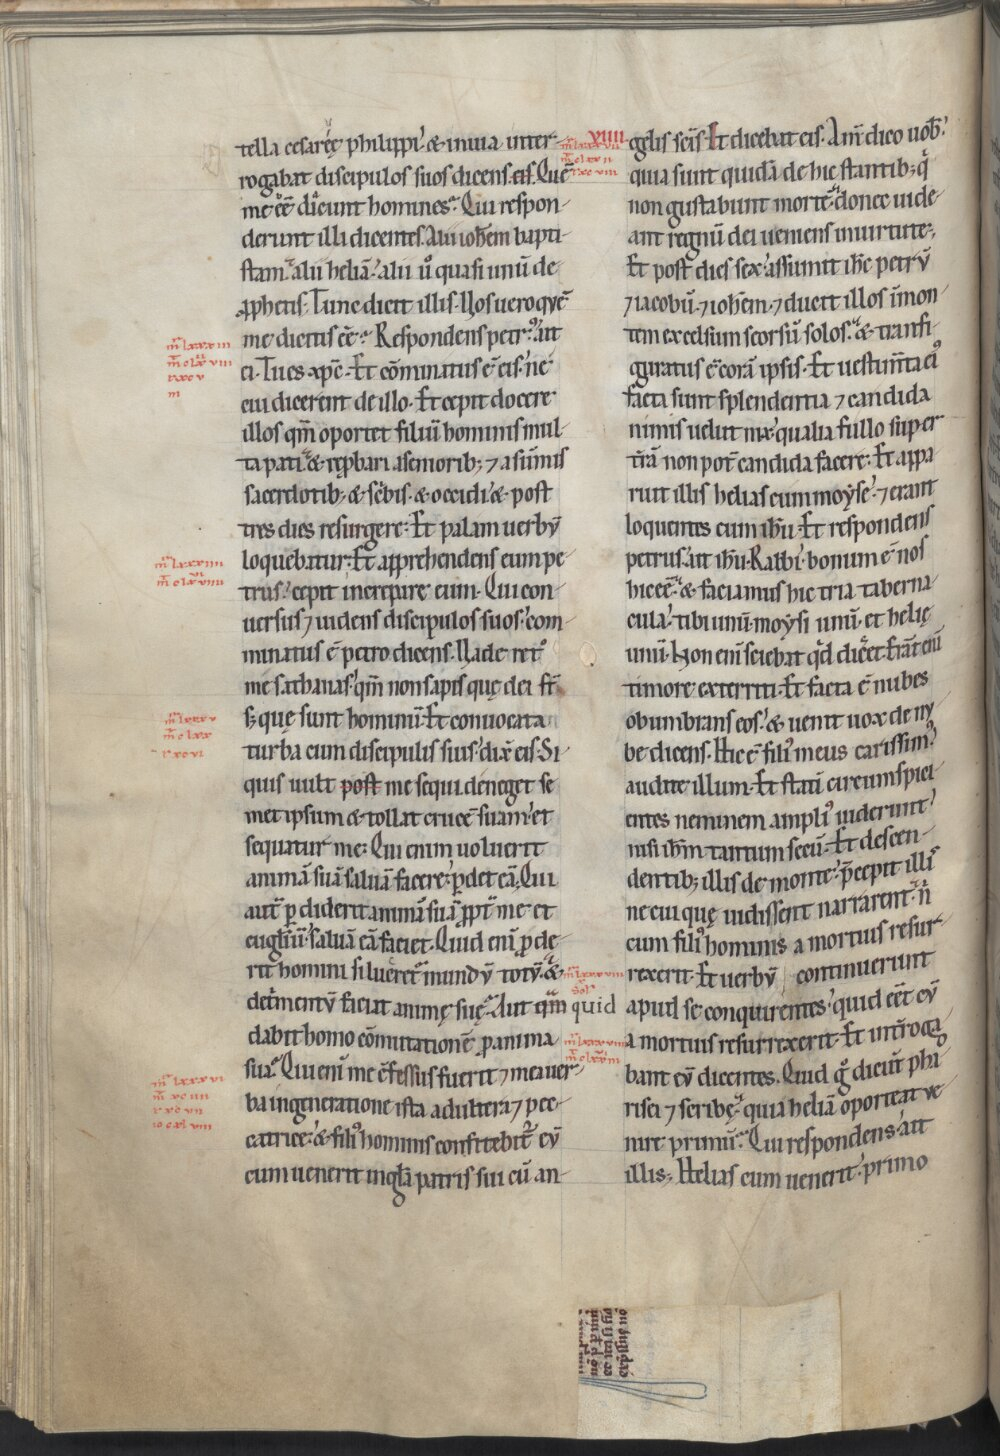 tella cesaręę philippi. & in uia inter-
rogabat discipulos suos dicens eis. Quē
me eē dicunt homines. Qui respon-
derunt illi dicentes. Alii ioh̄em bapti-
stam. alii heliā. alii u̅ quasi unū de
ꝓphetis. Tunc dicit illis. Uos uero quē
me dicitis eē. Respondens petrꝰ ait
ei. Tu es xp̄c. Et cōminatus ē eis. ne
cui dicerent de illo. Et cepit docere
illos qm̄ oportet filiū hominis mul-
ta pati. & rep̱bari a seniorib; ⁊ a sūmis
sacerdotib; & sc̄bis. & occidi. & post
tres dies resurgere. Et palam uerbū
loquebatur. Et apprehendens eum pe-
trus. cepit increpare eum. Qui con-
uersus ⁊ uidens discipulos suos. com-
minatus ē petro dicens. Uade retᵒ
me sathanas. qm̄ non sapis quę dei st̄
s; quę sunt hominū. Et conuocata
turba cum discipulis suis. dix̄ eis. Si
quis uult post me sequi deneget se
met ipsum & tollat crucē suam. et
sequatur me. Qui enim uoluerit
animā suā saluā facere. ꝑdet eā. Qui
aut̄ ꝑdiderit animā suā ꝓpt̄ me et
euglīū. saluā eā faciet. Quid enī ꝓde
rit homini si lucret̄ mundū totū. &
det̄mentū faciat animę suę. Aut qm̄ quid
dabit homo cōmutationē ꝓ anima
sua. Qui enī me c̄fessus fuerit ⁊ mea uer
ba in generatione ista adultera ⁊ pec-
catrice. & filiꝰ hominis confitebit̄ eū
cum uenerit in gl̄a patris sui cū an-
uiiii
gelis sc̄is. Et dicebat eis. Am̄ dico uob̄.
quia sunt quidā de hic stantib; q̄
non gustabunt mortē. donec uide-
ant regnū dei ueniens in uirtute.
Et post dies sex. assumit ih̄c petrū
⁊ iacobū. ⁊ ioh̄em. ⁊ ducit illos ī mon-
tem excelsum seorsū solos. & transfi-
guratus ē corā ipsis. Et uestim̄ta eiꝰ
facta sunt splendentia ⁊ candida
nimis uelut nix. qualia fullo super
t̄rā non pot̄ candida facere. Et appa-
ruit illis helias cum moẏse. ⁊ erant
loquentes cum ih̄u. Et respondens
petrus. ait ih̄u. Rabbi. bonum ē nos
hic eē. & faciamus hic tria taberna-
cula. tibi unū. moẏsi unū. et helię
unū. Non enī sciebat qd̄ dic̄et. Erāt enī
timore exterriti. Et facta ē nubes
obumbrans eos. & uenit uox de nu
be dicens. Hic ē filiꝰ meus carissimꝰ
audite illum. Et statī circumspici-
entes neminem ampliꝰ uiderunt
nisi ih̄m tantum secū. Et descen-
dentib; illis de monte. p̄cepit illis
ne cui quę uidissent narrarent. n̄
cum filiꝰ hominis a mortuis resur-
rexerit. Et uerbū continuerunt
apud se conquirentes. quid eēt cū
a mortuis resurrexerit. Et int̄roga
bant eū dicentes. Quid g̊ dicūt phi
risei ⁊ scribę. quia heliā oporteat ue
nire primū. Qui respondens. ait
illis. Helias cum uenerit. primo